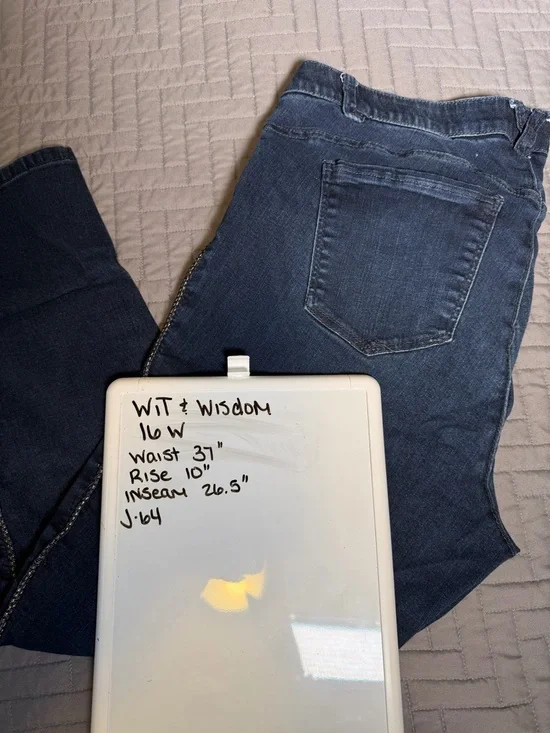 WIT & WISDOM
16 W
Waist 37"
Rise 10"
INSEAM 26.5"
J-64